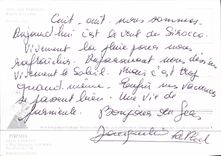 Cuit - cuit - nous sommes.
Aujourd'hui c'est le vent de Sirocco.
Vivement la pluie pour nous
rafraîchir. Auparavant nous désirions
vivement le Soleil. Mais c'est trop
quand même. Enfin nos vacances
se passent bien. Une vie de
farniente. Bonjour
Jacqueline